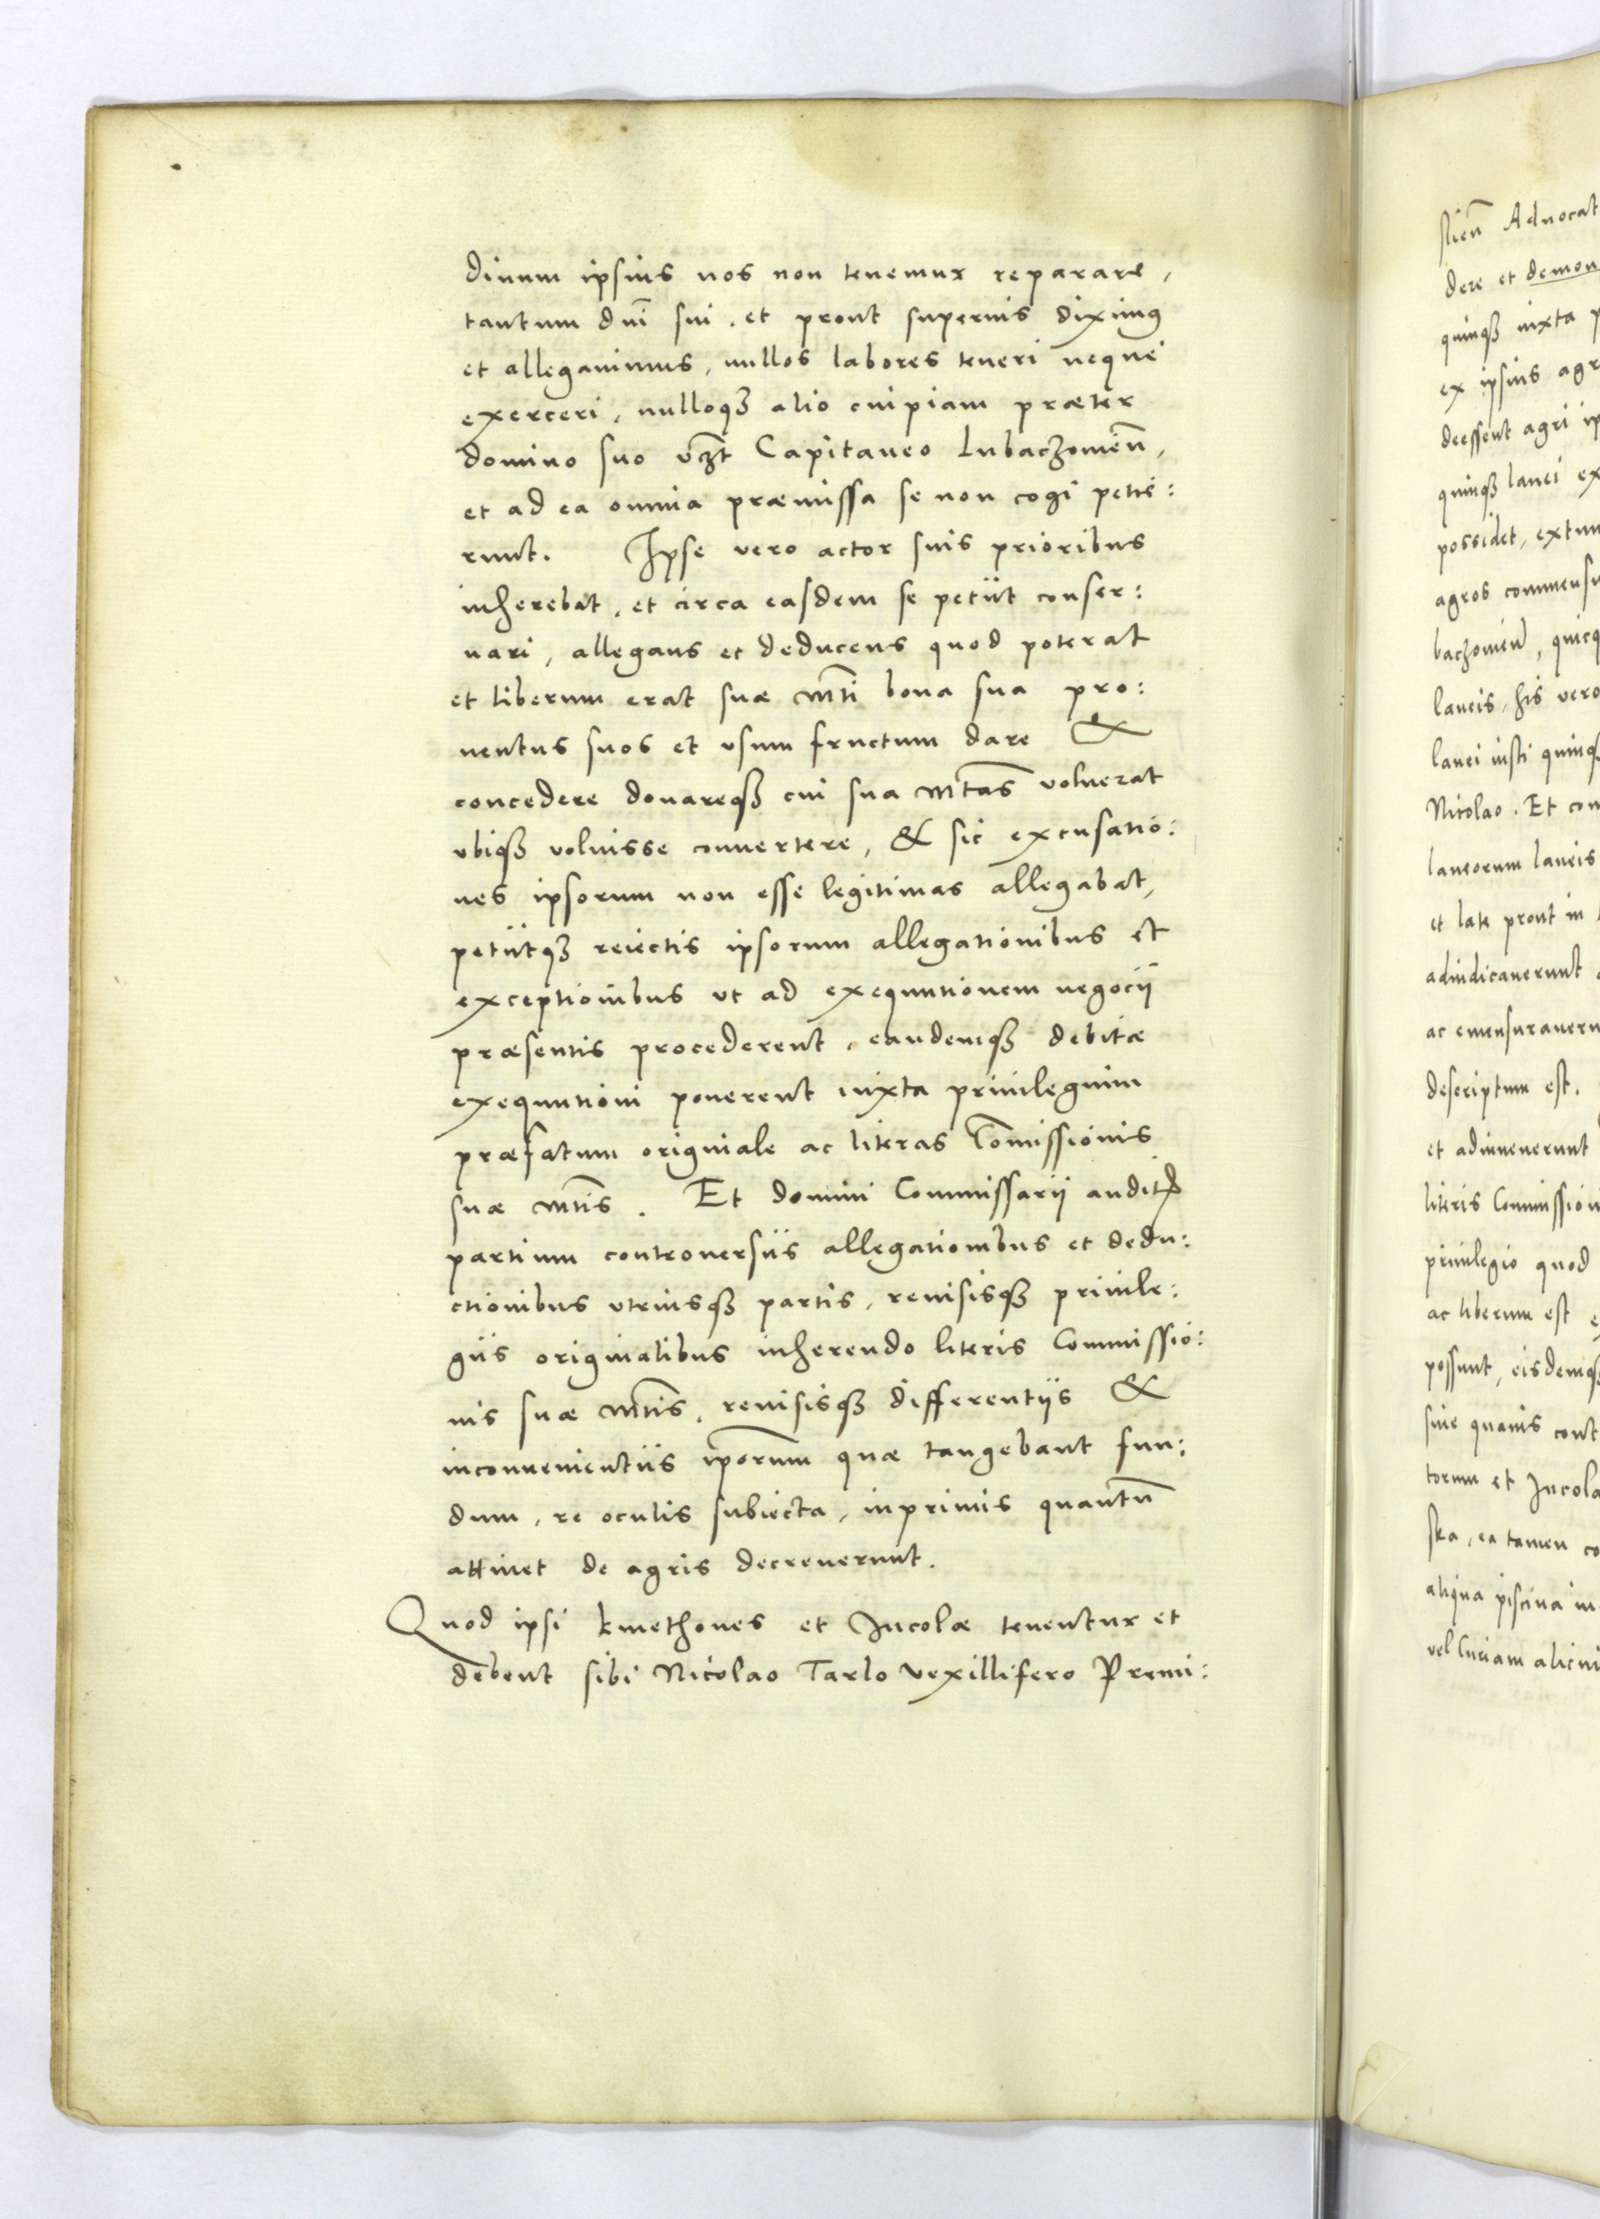 dinum ipsius nos non tenemur reparare,
tantum dni sui. et prout superius diximus
et allegauimus, nullos labores teneri neque
exerceri, nulloq3 alio cuipiam præter
domino suo vzt Capitaneo Lubaczouien,
et ad ea omnia præmissa se non cogi petie:
runt. Ipse vero actor suis prioribus
inherebat, et circa easdem se petiit conser:
uari, allegans et deducens quod poterat
et liberum erat suæ mti bona sua pro:
uentus suos et vsum fructum dare &
concedere donareq3 cui sua mtas voluerat
vbiq3 voluisse conuertere, & sic excusatio:
nes ipsorum non esse legitimas allegabat,
petiitq3 reiectis ipsorum allegationibus et
exceptionibus vt ad exequutionem negocii
præsentis procederent, eandemq3 debitæ
exequutioni ponerent iuxta priuilegium
præfatum originale ac literas Comissionis
suæ mtis. Et domini Commissarii auditis
partium controuersiis allegationibus et dedu:
ctionibus vtriusq3 partis, reuisisq3 priuile:
giis originalibus inherendo literis Commissio:
nis suæ mtis, reuisisq3 differentiis &
inconuenientiis iporum quæ tangebant fun:
dum, re oculis subiecta, inprimis quantu
attinet de agris decreuerunt.
Quod ipsi kmethones et Incolæ tenentur et
debent sibi Nicolao Tarlo vexillifero Premi:
slien Aduocat
dere et demon
quinq3 iuxta
ex ipsius agr
deessent agri ip
quinq3 lanei ex
possidet, extun
agros commensu
baczouien, quicq
laneis, his vero
lanei iusti quinq3
Nicolao. Et con
laneorum laneis
et late prout in
adiudicauerunt
ac emensurauerun
descriptum est.
et adinuenerunt
literis Commission
priuilegio quod
ac liberum est
possunt, eisdemq3
siue quauis cont
torum et Incola
ska, ea tamen co
aliqua piscina in
vel alicui